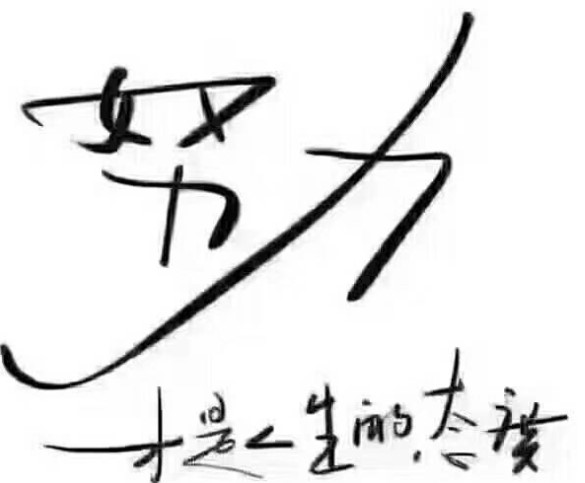 努力
才是人生的态度